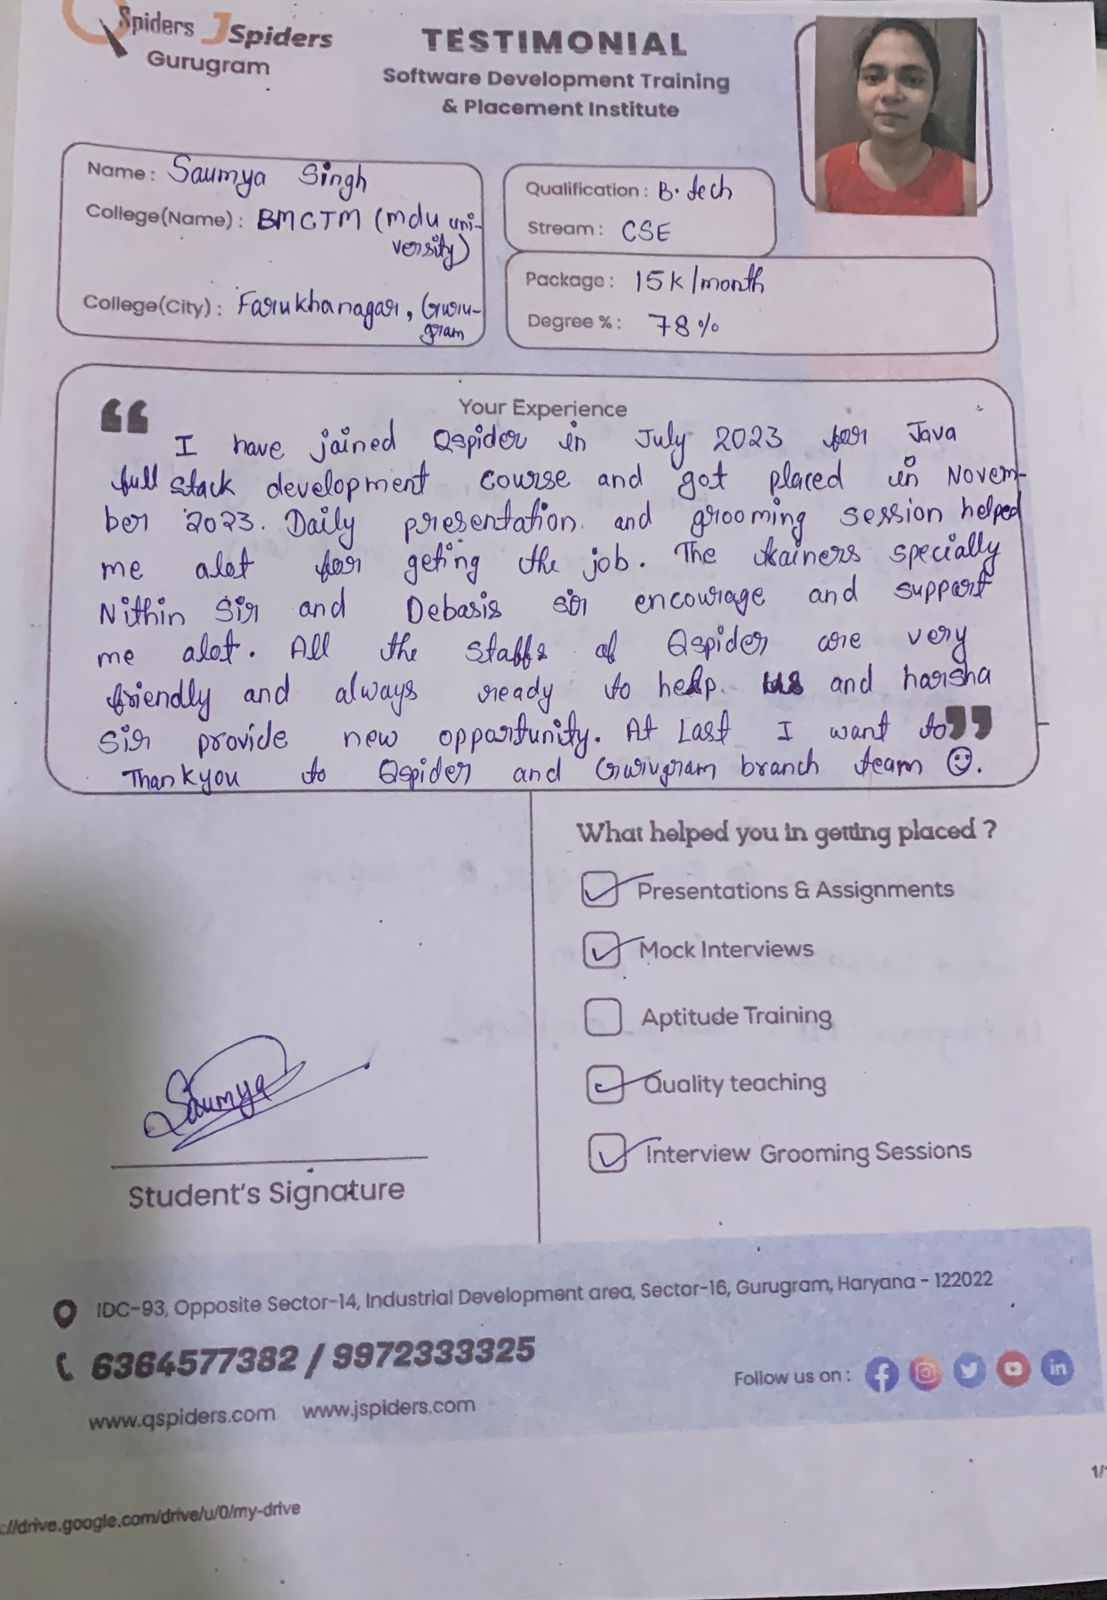 QSpiders JSpiders
Gurugram
TESTIMONIAL
Software Development Training
& Placement Institute
Name : Saumya Singh
College(Name) : BMCTM (mdu uni-
versity)
College(City) : Farukhanagar, Guru-
gram
Qualification : B.tech
Stream : CSE
Package : 15k/month
Degree % : 78%
Your Experience
“ I have joined Qspider in July 2023 for Java
full stack development course and got placed in Novem-
ber 2023. Daily presentation. and grooming session helped
me alot for geting the job. The trainers specially
Nithin Sir and Debasis sir encourage and support
me alot. All the staffs of Qspider are very
friendly and always ready to help. us and harsha
Sir provide new opportunity. At Last I want to ”
Thankyou to Qspider and Gurugram branch team ☺.
What helped you in getting placed ?
Presentations & Assignments
Mock Interviews
Aptitude Training
Quality teaching
Interview Grooming Sessions
Saumya
Student's Signature
IDC-93, Opposite Sector-14, Industrial Development area, Sector-16, Gurugram, Haryana - 122022
6364577382 / 9972333325
www.qspiders.com www.jspiders.com
Follow us on :
1/
://drive.google.com/drive/u/0/my-drive